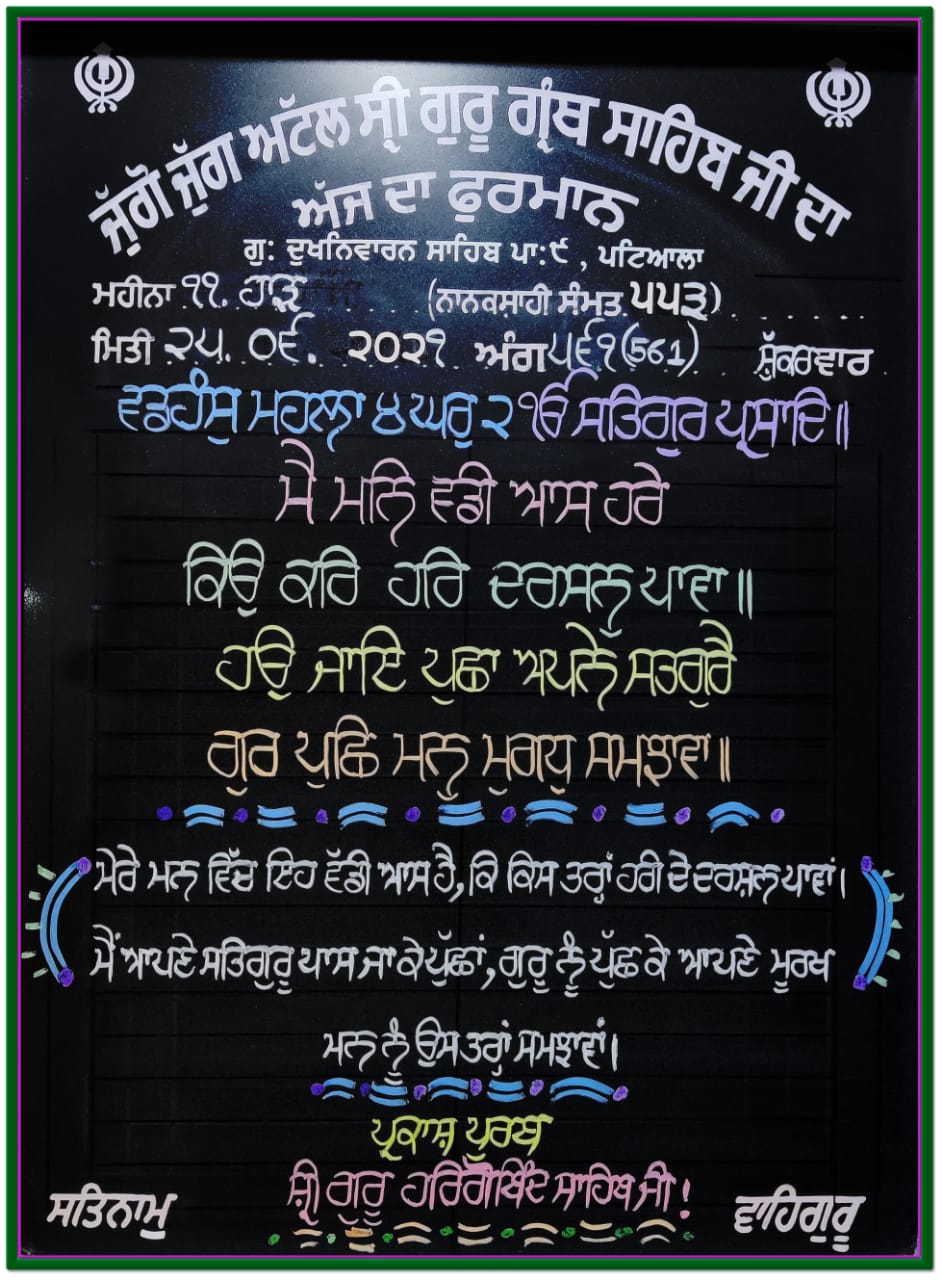 ਜੁੱਗੋ ਜੁੱਗ ਅਟੱਲ ਸ੍ਰੀ ਗੁਰੂ ਗ੍ਰੰਥ ਸਾਹਿਬ ਜੀ ਦਾ
ਅੱਜ ਦਾ ਫੁਰਮਾਨ
ਗੁ: ਦੁਖਨਿਵਾਰਨ ਸਾਹਿਬ ਪਾ:੯ , ਪਟਿਆਲਾ
ਮਹੀਨਾ ੧੧. ਹਾੜ (ਨਾਨਕਸ਼ਾਹੀ ਸੰਮਤ ੫੫੩)
ਮਿਤੀ ੨੫. ੦੬. ੨੦੨੧ ਅੰਗ ੫੬੧ (561) ਸ਼ੁੱਕਰਵਾਰ
ਵਡਹੰਸੁ ਮਹਲਾ ੪ ਘਰੁ ੨ ੴ ਸਤਿਗੁਰ ਪ੍ਰਸਾਦਿ॥
ਮੈ ਮਨਿ ਵਡੀ ਆਸ ਹਰੇ
ਕਿਉ ਕਰਿ ਹਰਿ ਦਰਸਨੁ ਪਾਵਾ॥
ਹਉ ਜਾਇ ਪੁਛਾ ਅਪਨੇ ਸਤਗੁਰੈ
ਗੁਰ ਪੁਛਿ ਮਨੁ ਮੁਗਧੁ ਸਮਝਾਵਾ॥
ਮੇਰੇ ਮਨ ਵਿੱਚ ਇਹ ਵੱਡੀ ਆਸ ਹੈ, ਕਿ ਕਿਸ ਤਰ੍ਹਾਂ ਹਰੀ ਦੇ ਦਰਸ਼ਨ ਪਾਵਾਂ।
ਮੈਂ ਆਪਣੇ ਸਤਿਗੁਰੂ ਪਾਸ ਜਾ ਕੇ ਪੁੱਛਾਂ, ਗੁਰੂ ਨੂੰ ਪੁੱਛ ਕੇ ਆਪਣੇ ਮੂਰਖ
ਮਨ ਨੂੰ ਉਸ ਤਰ੍ਹਾਂ ਸਮਝਾਵਾਂ।
ਪ੍ਰਕਾਸ਼ ਪੁਰਬ
ਸ਼੍ਰੀ ਗੁਰੂ ਹਰਿਗੋਬਿੰਦ ਸਾਹਿਬ ਜੀ!
ਸਤਿਨਾਮੁ ਵਾਹਿਗੁਰੂ